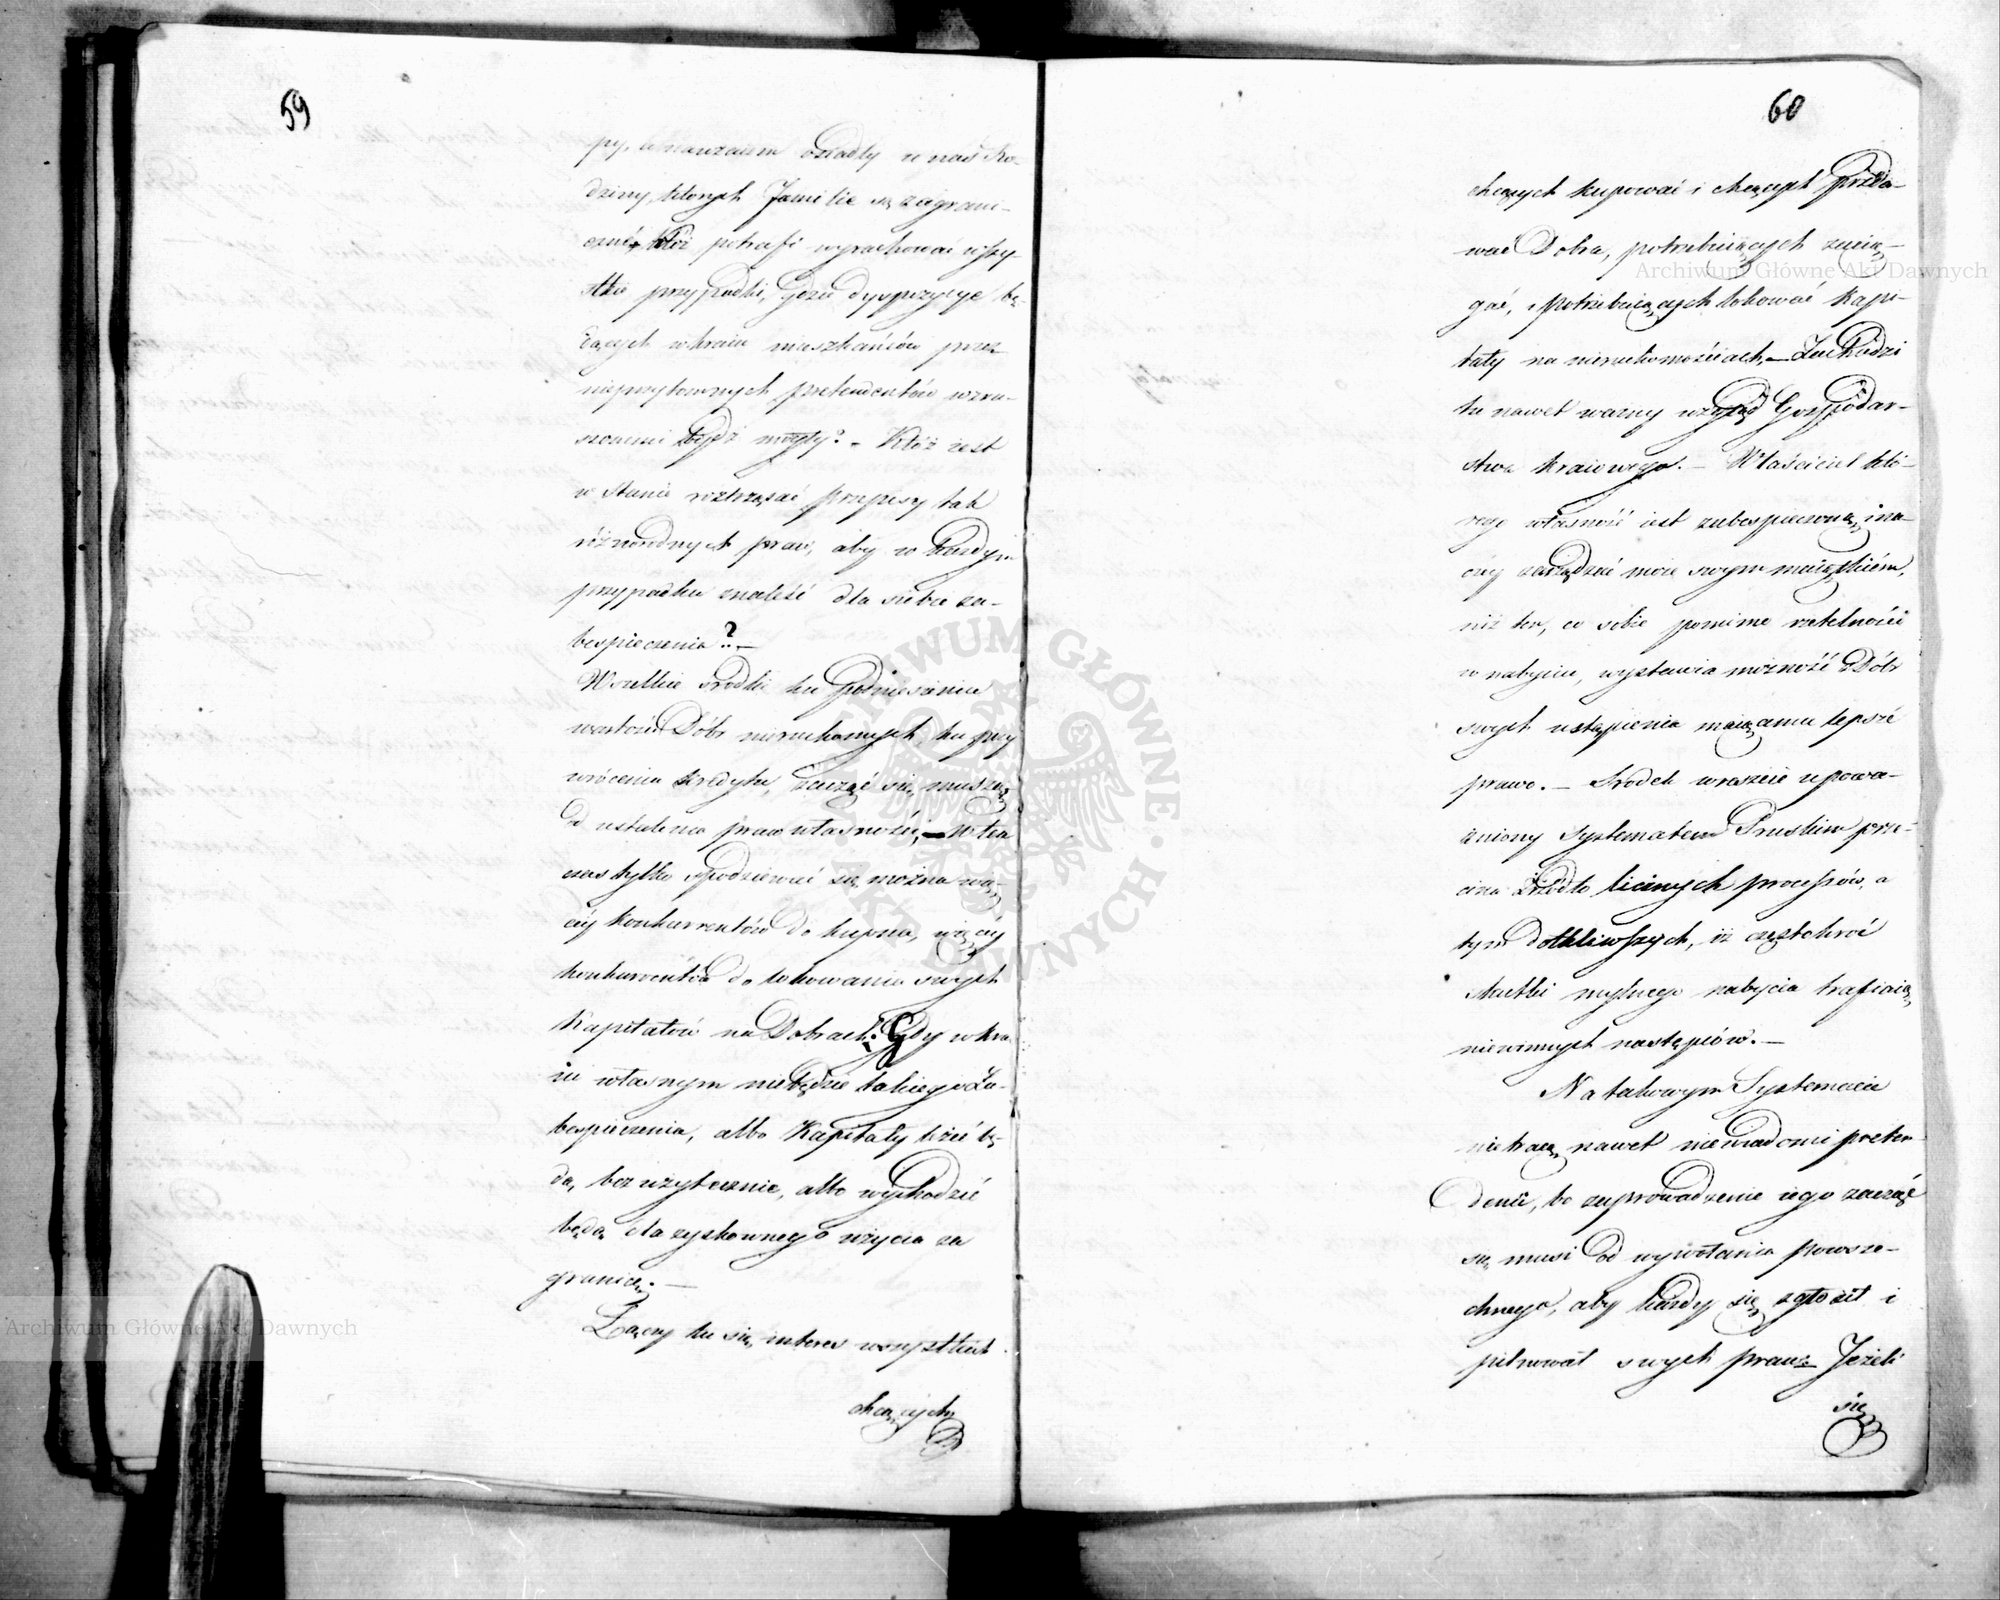 59
py, osiadły w nas Ro-
dziny, których Familie są zagrani-
czné, któż potrafi wyrachować wszy-
stkie przypadki, gdzie dyspozycye bę-
dących w kraiu mieszkańców przez
nieprzytomnych pretendentów wzru-
szonemi bydź mogły? - Któż iest
w stanie roztrząsać przepisy tak
różnorodnych praw, aby w każdym
przypadku znaleźć dla siebie za-
bespieczenia? —
Wszelkie środki ku podniesieniu
wartości Dóbr nieruchomych, ku przy
wrócenia kredytu, zacząć się muszą
od ustalenia praw własności, — W ten
czas tylko spodziewać się można wię-
céy konkurrentów do kupna, więcéy
konkurentów do lokowania swych
Kapitałów na Dobrach: Gdy w kra
iu własnym niebędzie takiego Za-
bespieczenia, albo Kapitały leżeć bę-
dą, bez użytecznie, albo wychodzić
będą dla zyskownego użycia za
granicę. —
Łączy tu się interes wszystkich
chcących
60
chcących kupować i chcących przeda-
wać Dobra, potrzebuiących zacią-
gać, i potrzebuiących lokować Kapi-
tały na nieruchomościach, — Zachodzi
tu nawet ważny wzgląd Gospodar-
stwa kraiowego. — Właściciel któ-
rego własność iest zabespieczoną, ina-
czéy zarządzać może swym maiątkiém,
niż ten, co sobie pomimo rzetelności
w nabyciu, wystawia możność Dóbr
swych ustąpienia maiącemu lepsze
prawo. — Srodek wreszcie upowa-
żniony Systematem Pruskim prze-
cina źródło licznych processów, a
tym dotkliwszych, iż częstokroć
skutki mylnego nabycia trafiaią
niewinnych następców. —
Na takowym Systemacie
nietracą nawet niewiadomi preten-
denci, bo zaprowadzenie iego zacząć
się musi od wywołania powsze-
chnego, aby każdy się zgłosił i
pilnował swych praw. Jeżeli
się
Archiwum Główne Akt Dawnych
Archiwum Główne Akt Dawnych
ARCHIWUM GŁÓWNE AKT DAWNYCH